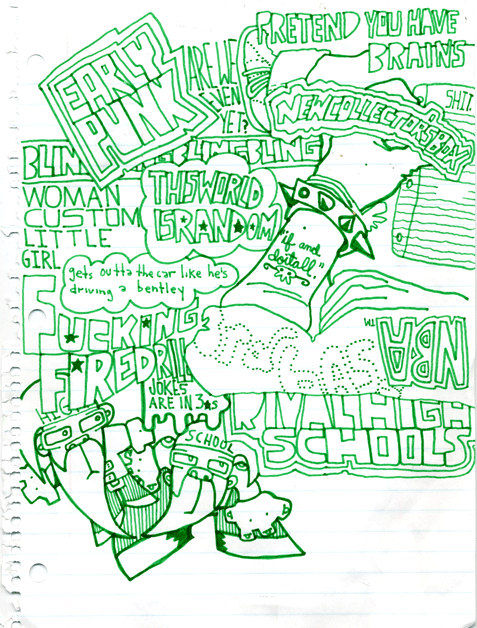 PRETEND YOU HAVE
BRAINS
EARLY
PUNK
ARE WE
EVEN
YET?
SHIT.
NEWCOLLECTORSBOX
BLING BLING
WOMAN
CUSTOM
LITTLE
GIRL
THIS WORLD
IS RANDOM
"if and
doitall"
gets outta the car like he's
driving a bentley
FUCKING
FIRE DRILL
JOKES
ARE IN 3s
NBA
TM
RIVAL HIGH
SCHOOLS
HIGH
SCHOOL